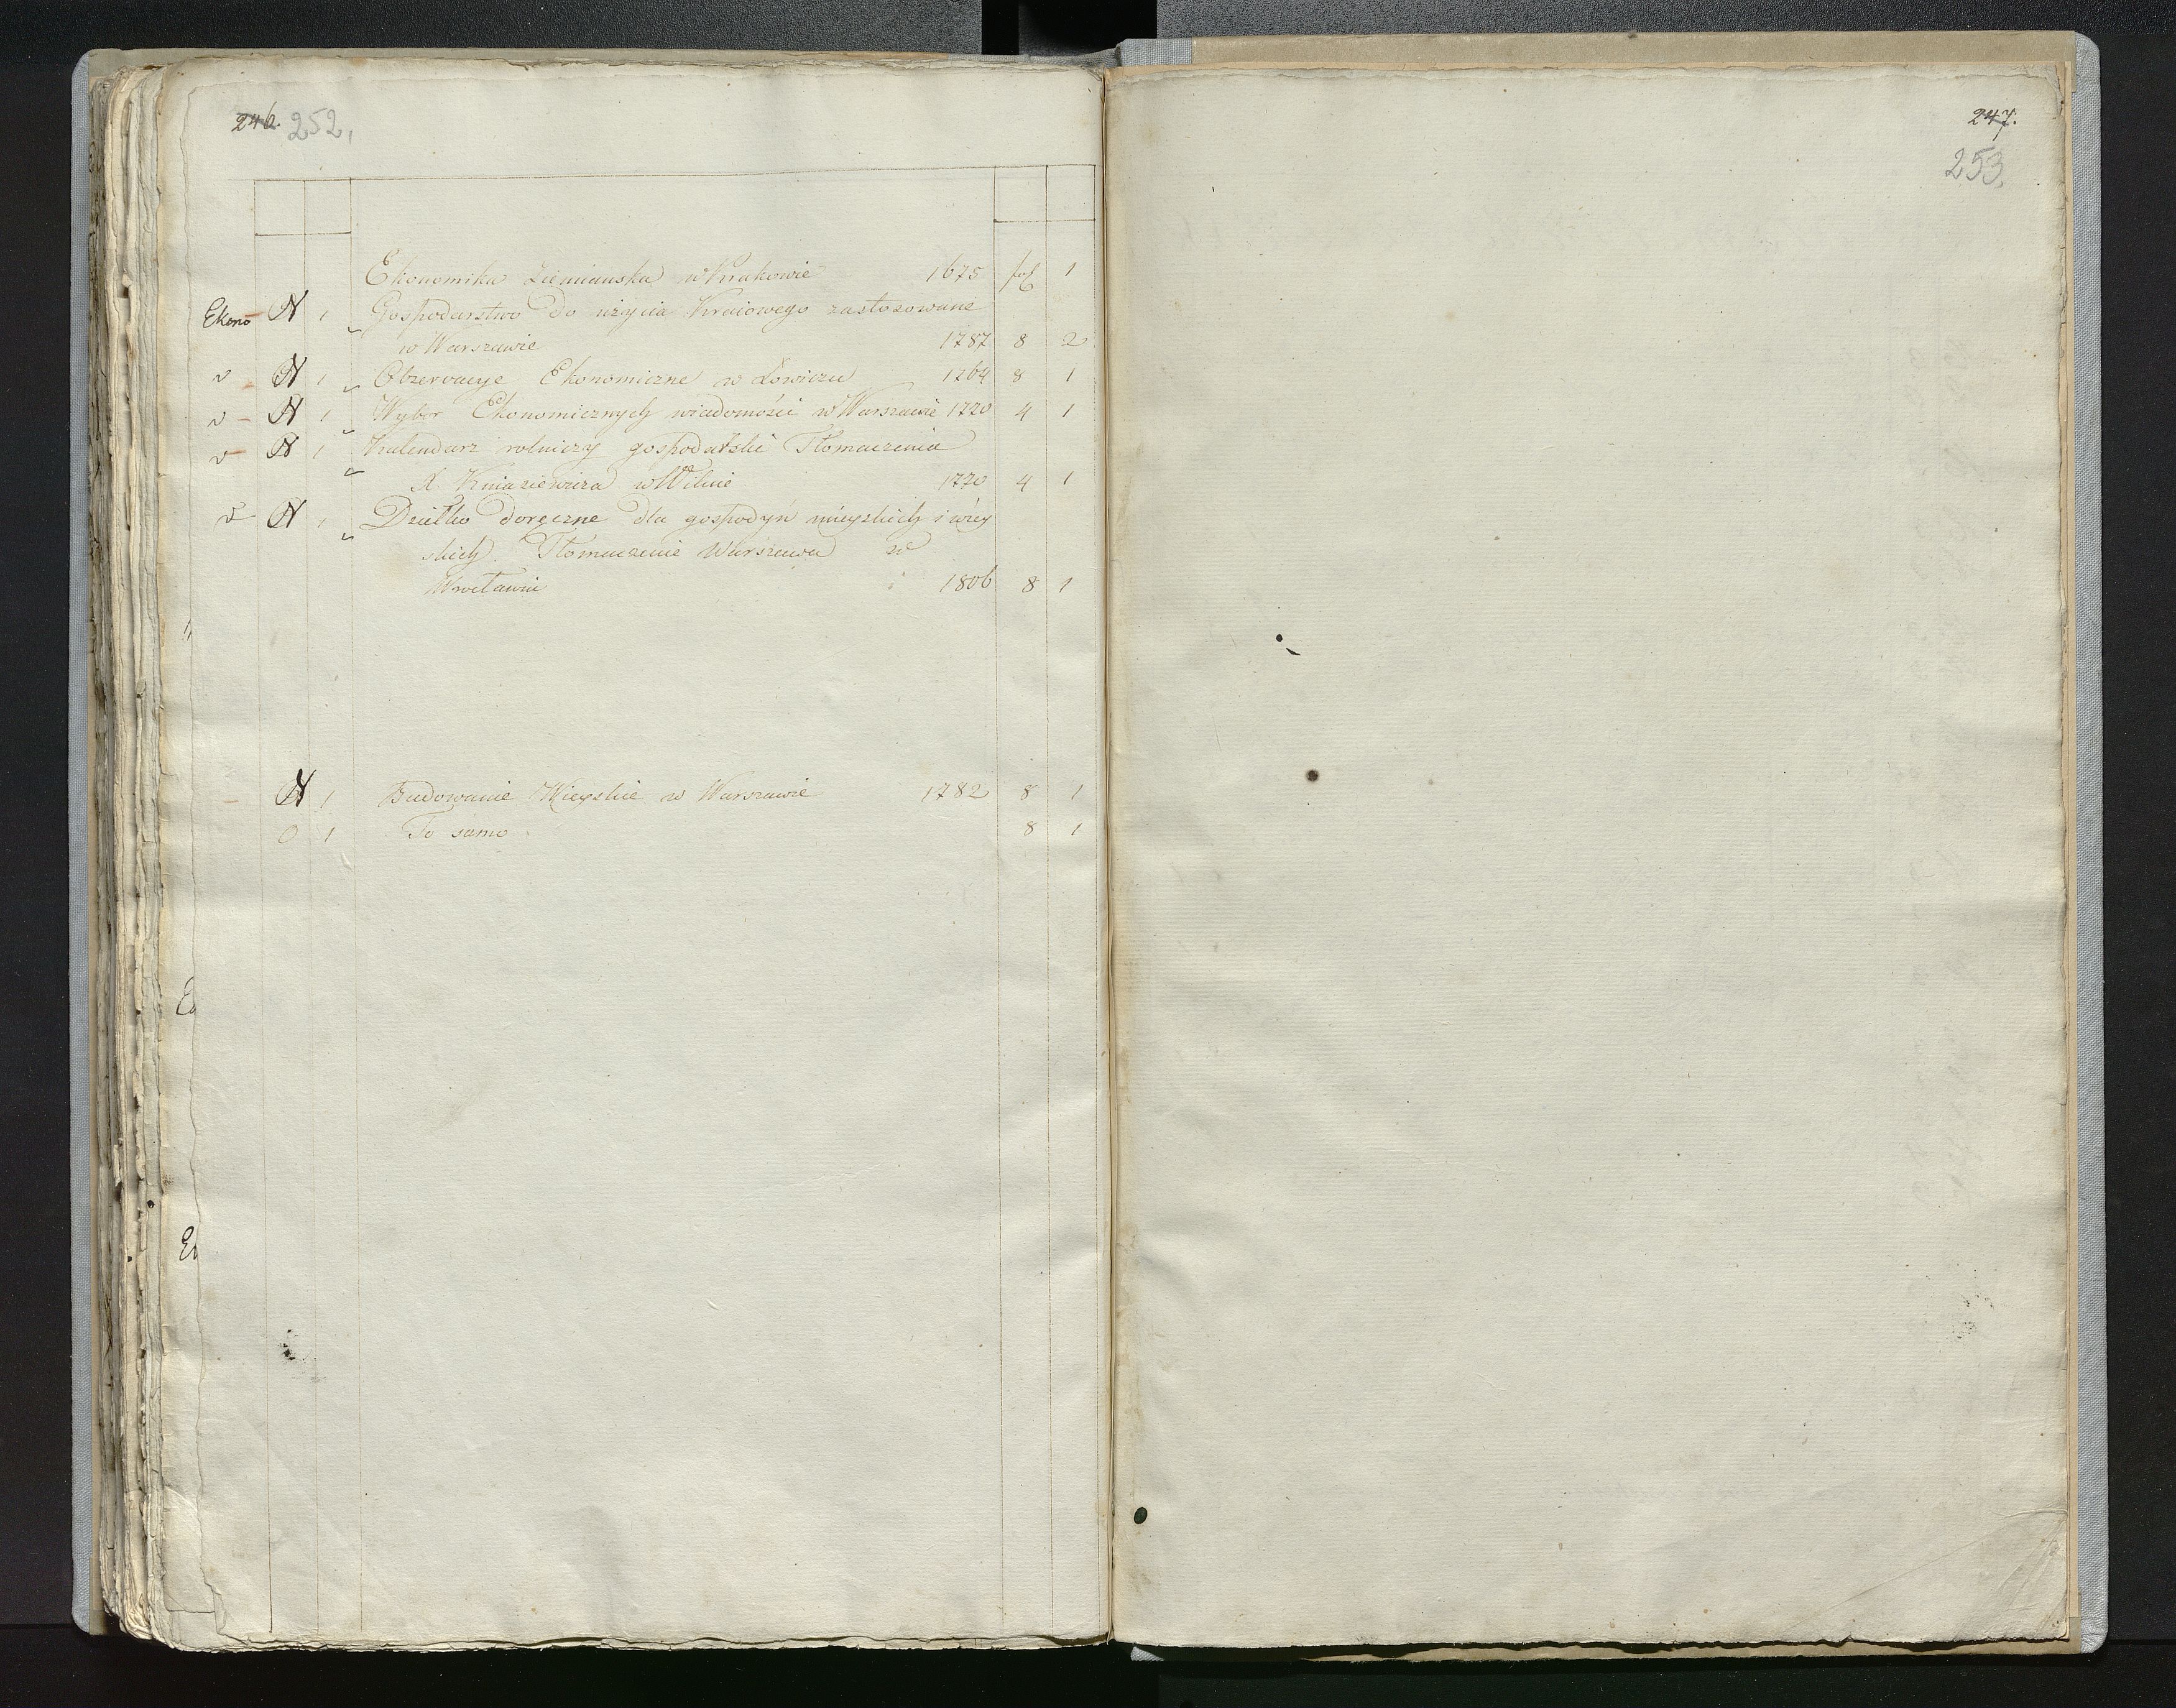 246. 252,
Ekonomika Ziemianska w Krakowie 1675 fol 1
Ekono N 1 Gospodarstwo do użycia Kraiowego zastosowane
w Warszawie 1787 8 2
v N 1 Obzerwacye Ekonomiczne w Łowiczu 1769 8 1
v N 1 Wybor Ekonomicznych wiadomości w Warszawie 1770 4 1
v N 1 Kalendarz rolniczy gospodarski Tłomaczenia
X Kniaziewicza w Wilnie 1770 4 1
v N 1 Dziełko doręczne dla gospodyń mieyskich i wiey
skich. Tłomaczenie Warszawa w
Wrocławiu 1806 8 1
N 1 Budowanie Wieyskie w Warszawie 1782 8 1
O 1 To samo 8 1
247.
253.